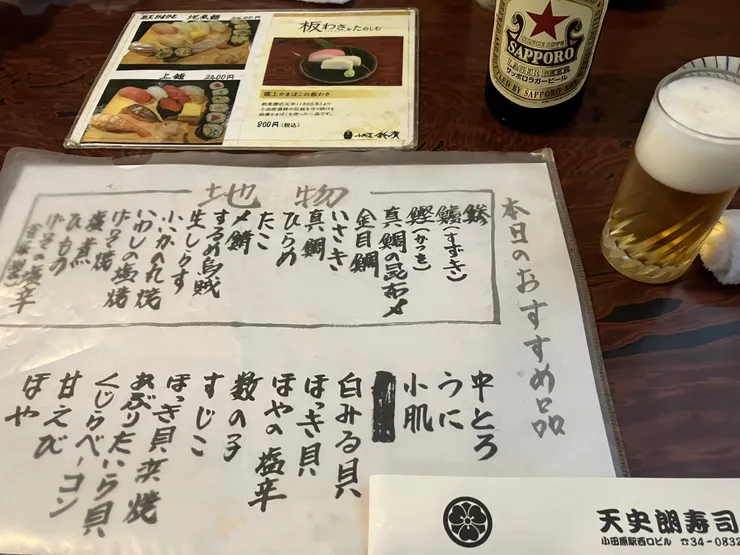 地魚鮨
上鮨 2400円
板わさをたのしむ
極上かまぼこの板わさ
800円(税込)
SAPPORO
LAGER BEER
サッポロラガービール
本日のおすすめ品
地物
鯵
鱸(すずき)
鰹(かつを)
真鯛の昆布〆
金目鯛
いさき
真鯛
ひらめ
たこ
〆鯖
するめ烏賊
生しらす
小いかの丸焼
いわしの塩焼
げそ焼
塩煮
ひもの
げその塩辛
中とろ
うに
小肌
白みる貝
ほっき貝
ほやの塩辛
数の子
すじこ
ほっき貝浜焼
あぶりたいら貝
くじらベーコン
甘えび
ほや
天史朗寿司
小田原駅西口ビル ☎34-0832